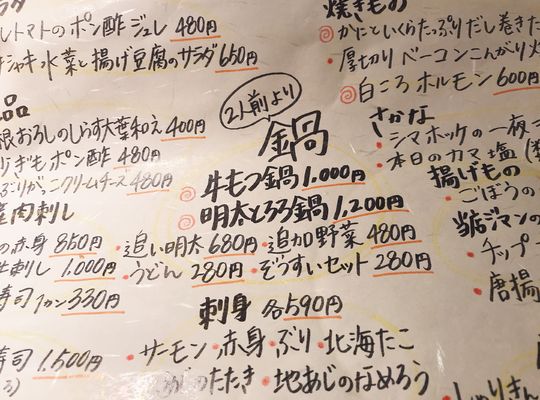 トマトのポン酢ジュレ 480円
シャキ水菜と揚げ豆腐のサラダ 650円
品
根おろしのしらす大葉和え 400円
ぎもポン酢 480円
ぶりがっこクリームチーズ 480円
肉刺し
の赤身 850円
刺し 1.000円
寿司 1カン 330円
寿司 1.500円
2人前より
鍋
牛もつ鍋 1.000円
明太とろろ鍋 1,200円
・追い明太 680円 ・追加野菜 480円
・うどん 280円 ・ぞうすいセット 280円
刺身 各590円
・サーモン・赤身・ぶり・北海たこ
のたたき ・地あじのなめろう
焼きもの
かにといくらたっぷりだし巻きた
・厚切りベーコンこんがり
白ころホルモン 600円
さかな
・シマホッケの一夜
・本日のカマ塩
揚げもの
・ごぼうの
当店ジマンの
・チップ
・唐揚